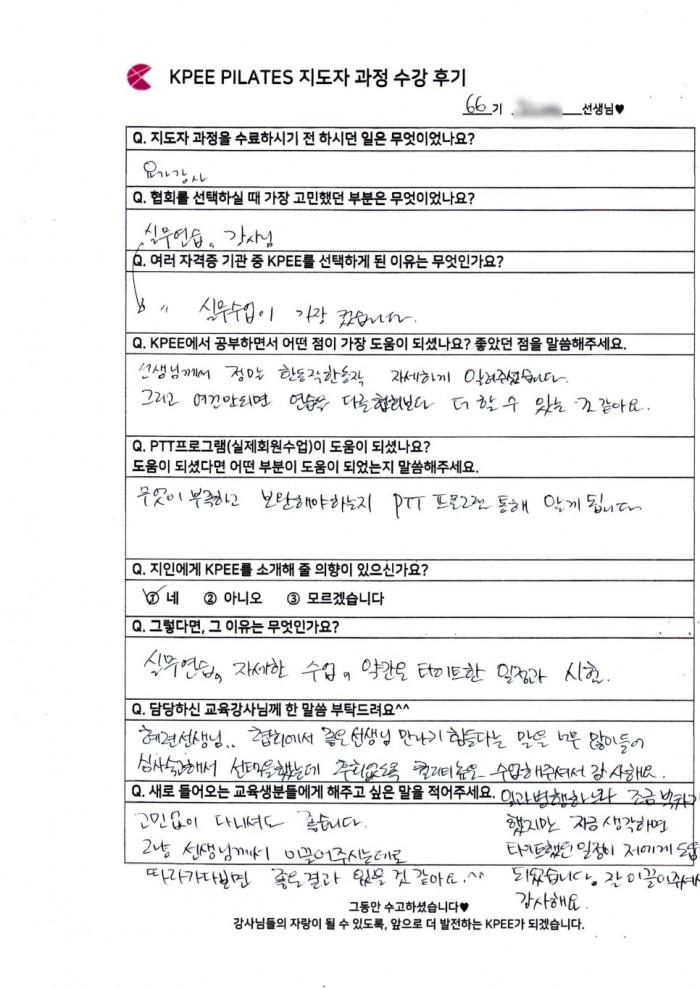 KPEE PILATES 지도자 과정 수강 후기
66기 선생님♥
Q. 지도자 과정을 수료하시기 전 하시던 일은 무엇이었나요?
요가강사
Q. 협회를 선택하실 때 가장 고민했던 부분은 무엇이었나요?
실무연습, 강사님
Q. 여러 자격증 기관 중 KPEE를 선택하게 된 이유는 무엇인가요?
〃 실무수업이 가장 컸습니다.
Q. KPEE에서 공부하면서 어떤 점이 가장 도움이 되셨나요? 좋았던 점을 말씀해주세요.
선생님께서 정말 한동작한동작 자세하게 알려주셨습니다.
그리고 여건만되면 연습을 다른협회보다 더 할 수 있는 것 같아요.
Q. PTT프로그램(실제회원수업)이 도움이 되셨나요?
도움이 되셨다면 어떤 부분이 도움이 되었는지 말씀해주세요.
무엇이 부족하고 보완해야하는지 PTT 프로그램 통해 알게 됩니다
Q. 지인에게 KPEE를 소개해 줄 의향이 있으신가요?
① 네 ② 아니오 ③ 모르겠습니다
Q. 그렇다면, 그 이유는 무엇인가요?
실무연습, 자세한 수업, 약간은 타이트한 일정과 시험.
Q. 담당하신 교육강사님께 한 말씀 부탁드려요^^
혜련선생님.. 협회에서 좋은선생님 만나기 힘들다는 말을 너무 많이들어
심사숙고해서 선택을했는데 후회없도록 퀄리티높은 수업해주셔서 감사해요.
Q. 새로 들어오는 교육생분들에게 해주고 싶은 말을 적어주세요.
고민없이 다니셔도 좋습니다.
그냥 선생님께서 이끌어주시는데로
따라가다보면 좋은결과 있을 것 같아요.^^
일과병행하느라 조금 벅차기
했지만 지금 생각하면
타이트했던 일정이 저에게 도움
되었습니다. 잘 이끌어주셔서
감사해요.
그동안 수고하셨습니다♥
강사님들의 자랑이 될 수 있도록, 앞으로 더 발전하는 KPEE가 되겠습니다.